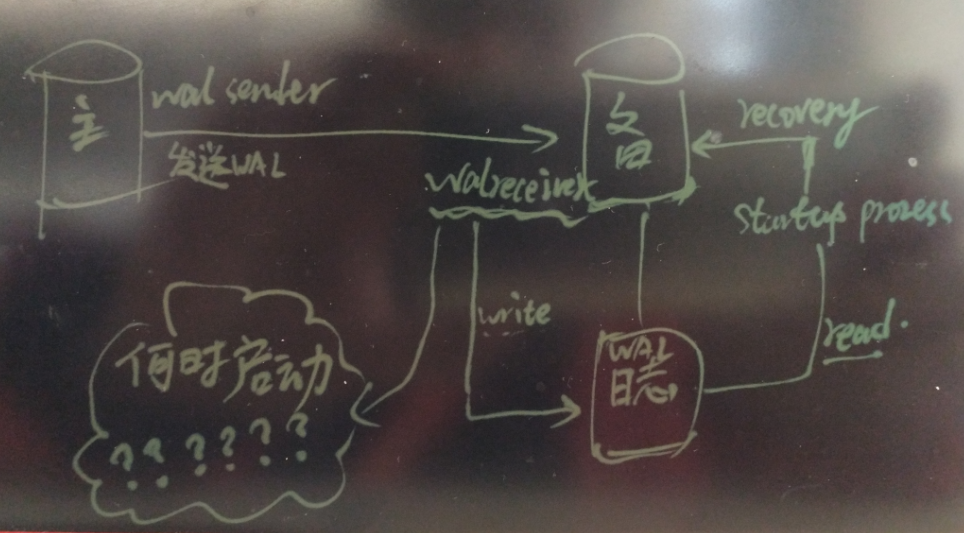 主
wal sender
发送WAL
备
recovery
walreceiver
startup prozess
write
WAL
日志
read.
何时启动
??????